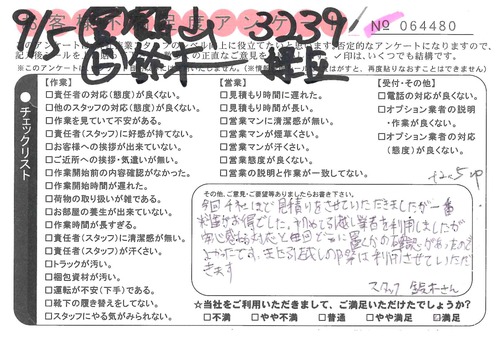 お客様不満足度アンケート
№ 064480
9/5 3239
のアンケートは
向上に役立てたいと思います。否定的なアンケートになりますので、
正直なご意見を
印は、いくつでも結構です。
【作業】
□責任者の対応(態度)が良くない。
□他のスタッフの対応(態度)が良くない。
□作業を見ていて不安がある。
□責任者(スタッフ)に好感が持てない。
□お客様への挨拶が出来ていない。
□ご近所への挨拶・気遣いが無い。
□作業開始前の内容確認がなかった。
□作業開始時間が遅れた。
□荷物の取り扱いが雑である。
□お部屋の養生が出来ていない。
□作業時間が長すぎる。
□責任者(スタッフ)に清潔感が無い。
□責任者(スタッフ)が汗臭い。
□トラックが汚い。
□梱包資材が汚い。
□運転が不安(下手)である。
□靴下の履き替えをしてない。
□スタッフにやる気がみられない。
【営業】
□見積もり時間に遅れた。
□見積もり時間が長い。
□営業マンに清潔感が無い。
□営業マンが煙草くさい。
□営業マンが汗くさい。
□営業態度が良くない。
□営業の説明と作業が一致してない。
【受付・その他】
□電話の対応が良くない。
□オプション業者の説明
・作業が良くない。
□オプション業者の対応
(態度)が良くない。
チェックリスト
その他、ご意見・ご要望等ありましたらお書き下さい。
今回
見積りをさせていただきましたが一番
料金もお得でした。初めて引越し業者を利用しましたが
安心感ある対応と
の確認があったので
よかったです。また引越しの際は利用させていただ
きます
スタッフ 鈴木さん
☆当社をご利用いただきまして、ご満足いただけたでしょうか?
□不満 □やや不満 □普通 □やや満足 ☑満足